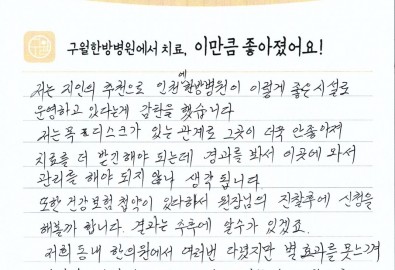 구월한방병원에서 치료, 이만큼 좋아졌어요!
저는 지인의 추천으로 인천에 한방병원이 이렇게 좋은 시설로
운영하고 있다는게 감탄을 했습니다
저는 목 디스크가 있는 관계로 그곳이 더욱 안좋아져
치료를 더 받긴해야 되는데 경과를 봐서 이곳에 와서
관리를 해야 되지 않나 생각 됩니다
또한 건강보험 첩약이 있다하서 원장님의 진찰후에 신청을
해볼까 합니다. 경과는 추후에 알수가 있겠죠.
저희 동내 한의원에서 여러번 다녔지만 별 효과를 못느껴